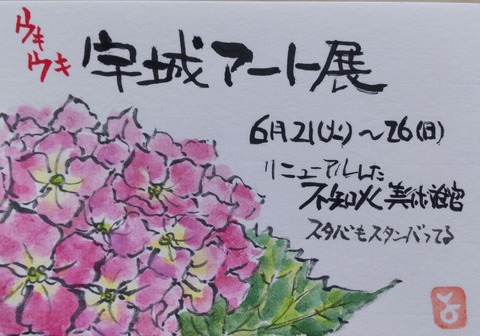 ウキ
ウキ
宇城アート展
6月21(火)〜26(日)
リニューアルした
不知火美術館
スタバもスタンバってる